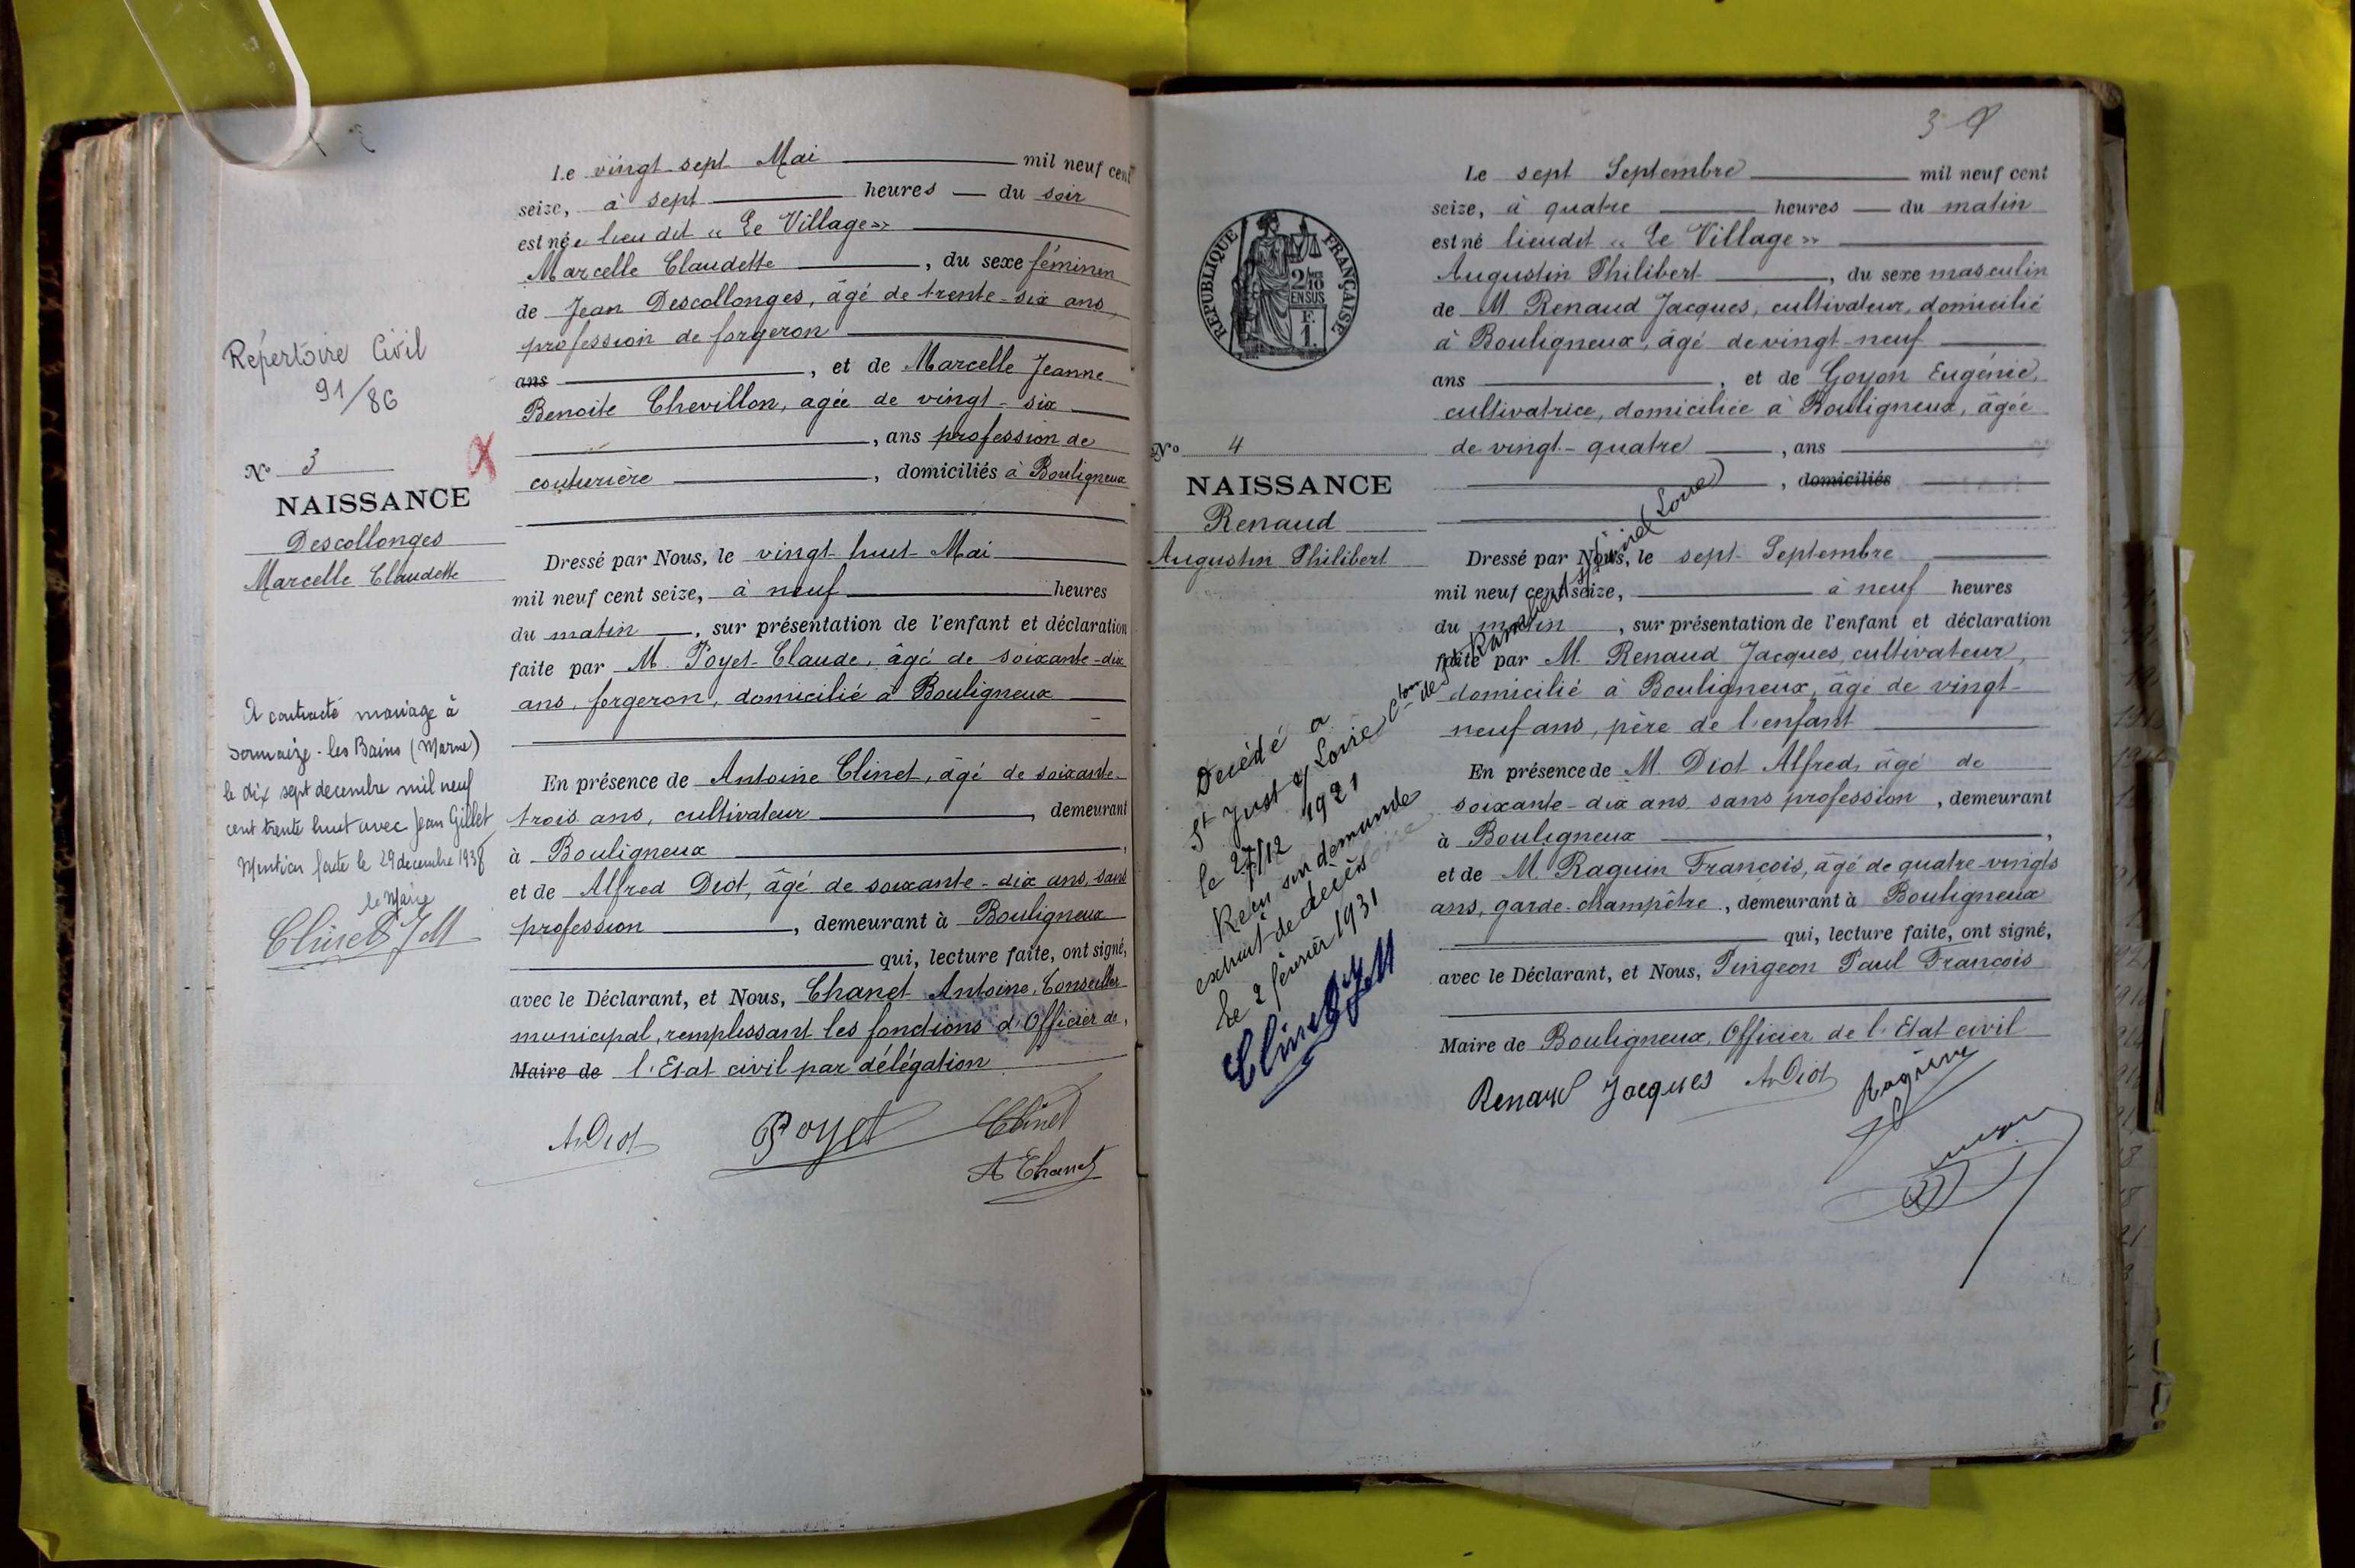 Répertoire Civil
91/86
Nº 3
NAISSANCE
Descollonges
Marcelle Claudette
A contracté mariage à
Sermaize-les Bains (Marne)
le dix sept décembre mil neuf
cent trente huit avec Jean Gillet
Mention faite le 29 décembre 1938
le Maire
Clinet JM
Le vingt-sept Mai mil neuf cent
seize, à sept heures du soir
est née lieu dit « Le Village »
Marcelle Claudette, du sexe féminin
de Jean Descollonges, âgé de trente-six ans,
profession de forgeron
ans, et de Marcelle Jeanne
Benoite Chevillon, agée de vingt-six
, ans profession de
couturière, domiciliés à Bouligneux
Dressé par Nous, le vingt-huit Mai
mil neuf cent seize, à neuf heures
du matin, sur présentation de l'enfant et déclaration
faite par M. Poyet Claude, âgé de soixante-dix
ans, forgeron, domicilié à Bouligneux
En présence de Antoine Clinet, âgé de soixante-
trois ans, cultivateur, demeurant
à Bouligneux,
et de Alfred Diot, âgé de soixante-dix ans, sans
profession, demeurant à Bouligneux
qui, lecture faite, ont signé,
avec le Déclarant, et Nous, Chanet Antoine, Conseiller
municipal, remplissant les fonctions d'Officier de,
Maire de l'Etat civil par délégation
A Diot Poyet Clinet
A Chanet
3
RÉPUBLIQUE FRANÇAISE
2/10
EN SUS
F.
1.
Nº 4
NAISSANCE
Renaud
Augustin Philibert
Decédé a
St Just s/ Loire Cton de St Rambert s/ Loire (Loire)
le 27/12 1921
Recu sur demande
extrait de décès
Le 2 février 1931
Clinet JM
Le sept Septembre mil neuf cent
seize, à quatre heures du matin
est né lieudit « Le Village »
Augustin Philibert, du sexe masculin
de M Renaud Jacques, cultivateur, domicilié
à Bouligneux, âgé de vingt-neuf
ans, et de Goyon Eugénie,
cultivatrice, domiciliée à Bouligneux, âgée
de vingt-quatre, ans
, domiciliés
Dressé par Nous, le sept Septembre
mil neuf cent seize, à neuf heures
du matin, sur présentation de l'enfant et déclaration
faite par M. Renaud Jacques, cultivateur,
domicilié à Bouligneux, âgé de vingt-
neuf ans, père de l'enfant
En présence de M. Diot Alfred, âgé de
soixante-dix ans sans profession, demeurant
à Bouligneux,
et de M. Raguin François, âgé de quatre-vingts
ans, garde-champêtre, demeurant à Bouligneux
qui, lecture faite, ont signé,
avec le Déclarant, et Nous, Pingeon Paul François
Maire de Bouligneux, Officier de l'Etat civil
Renaud Jacques A Diot